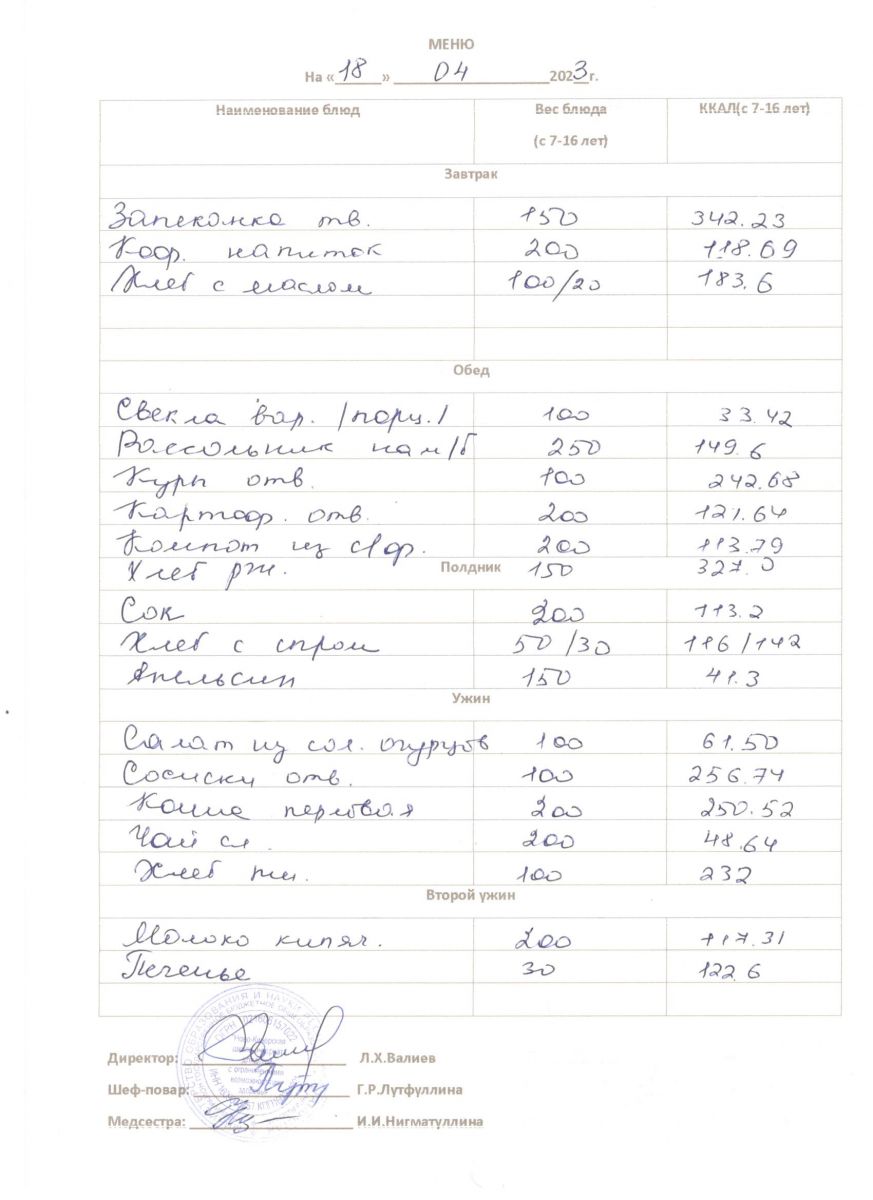 МЕНЮ
На « 18 » 04 2023г.
Наименование блюд Вес блюда (с 7-16 лет) ККАЛ(с 7-16 лет)
Завтрак
Запеканка тв. 150 342.23
Коф. напиток 200 118.69
Хлеб с маслом 100/20 183.6
Обед
Свекла вар. /порц./ 100 33.42
Рассольник на м/б 250 149.6
Куры отв. 100 242.68
Картоф. отв. 200 121.64
Компот из с/ф. 200 113.79
Хлеб рж. 150 327.0
Полдник
Сок 200 113.2
Хлеб с сыром 50/30 116/142
Апельсин 150 41.3
Ужин
Салат из сол. огурцов 100 61.50
Сосиски отв. 100 256.74
Каша перловая 200 250.52
Чай сл. 200 48.64
Хлеб пш. 100 232
Второй ужин
Молоко кипяч. 200 117.31
Печенье 30 122.6
Директор: Л.Х.Валиев
Шеф-повар: Г.Р.Лутфуллина
Медсестра: И.И.Нигматуллина